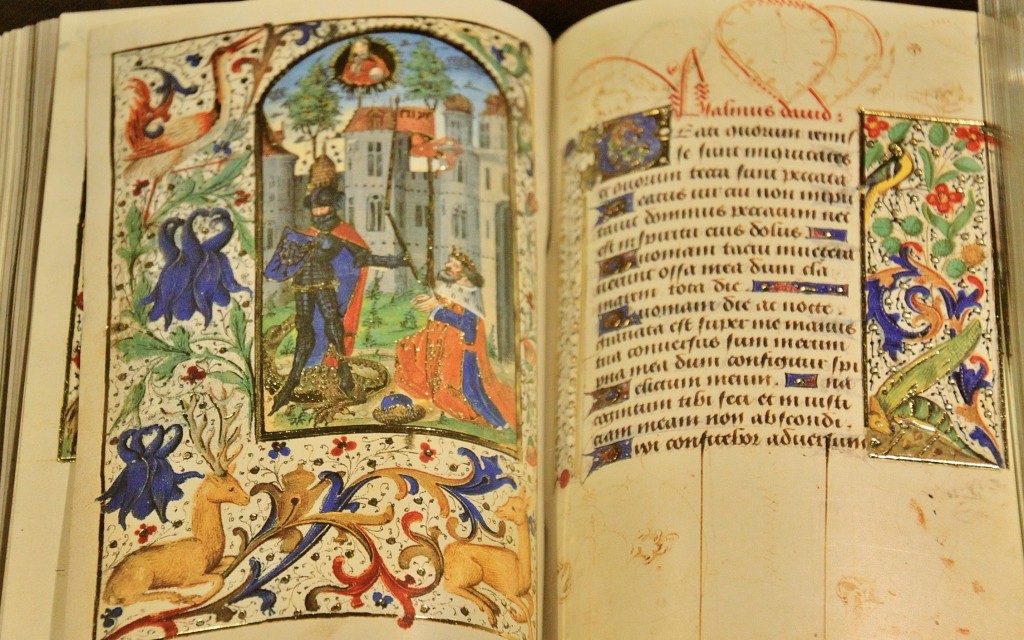 Psalmus dauid :
Beati quorum remis
se sunt iniquitates
et quorum tecta sunt peccata
Beatus uir cui non impu
tauit dominus peccatum nec
est in spiritu eius dolus
Quoniam tacui inuetera
uerunt ossa mea dum cla
marem tota die .
Quoniam die ac nocte .
grauata est super me manus
tua conuersus sum in erum
pna mea dum configitur spi
Delictum meum . na
cognitum tibi feci et iniusti
ciam meam non abscondi .
Dixi confitebor aduersum